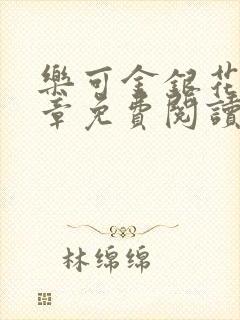 樂可金銀花
章免費閱讀
林绵绵